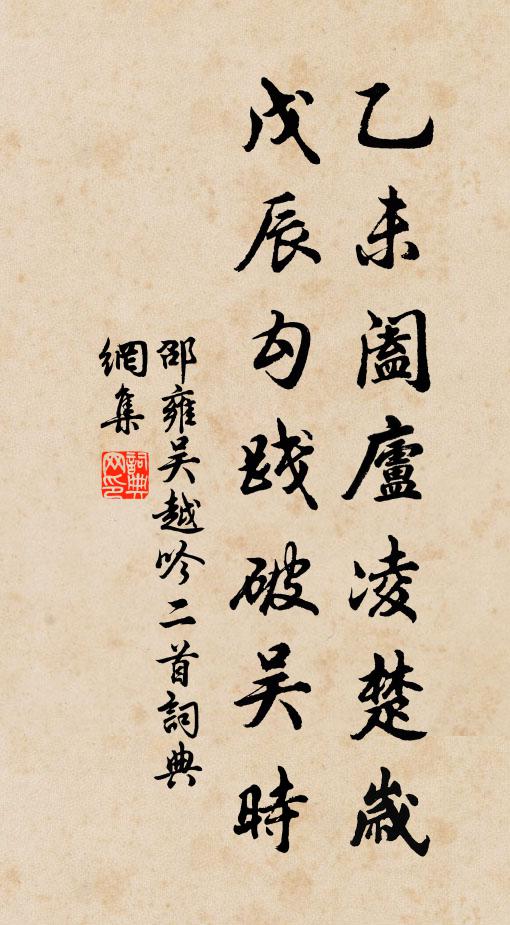 乙未闔廬凌楚歲
戊辰勾踐破吴時
邵雍吴越吟二首詞典
網集
詞典網印